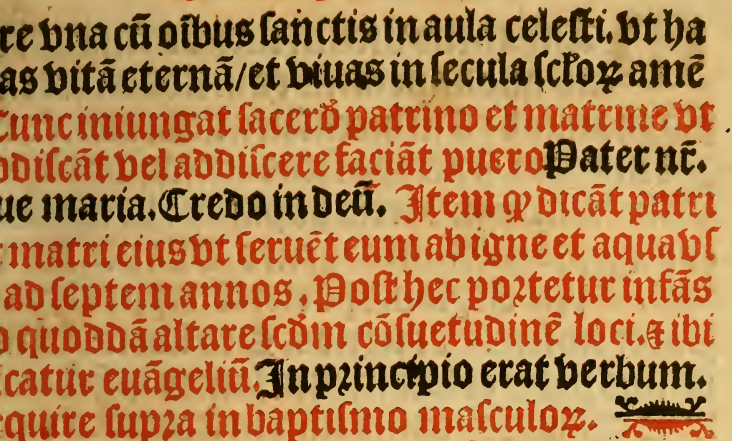 re vna cū oībus ſanctis in aula celeſti. vt ha
as vitā eternā/et viuas in ſecula ſcĺoꝝ amē
Tunc iniungat ſacerd̄ patrino et matrine vt
ddiſcāt vel addiſcere faciāt puero Pater nr̄.
ue maria. Credo in deū. Item ꝙ dicāt patri
matri eius vt ſeruēt eum ab igne et aqua vſ
ad ſeptem annos. Poſt hec poꝛtetur infās
quoddā altare ſcd̄m cōſuetudinē loci. ⁊ ibi
catur euāgeliū. In pꝛincipio erat verbum.
equire ſupꝛa in baptiſmo maſculoꝝ.